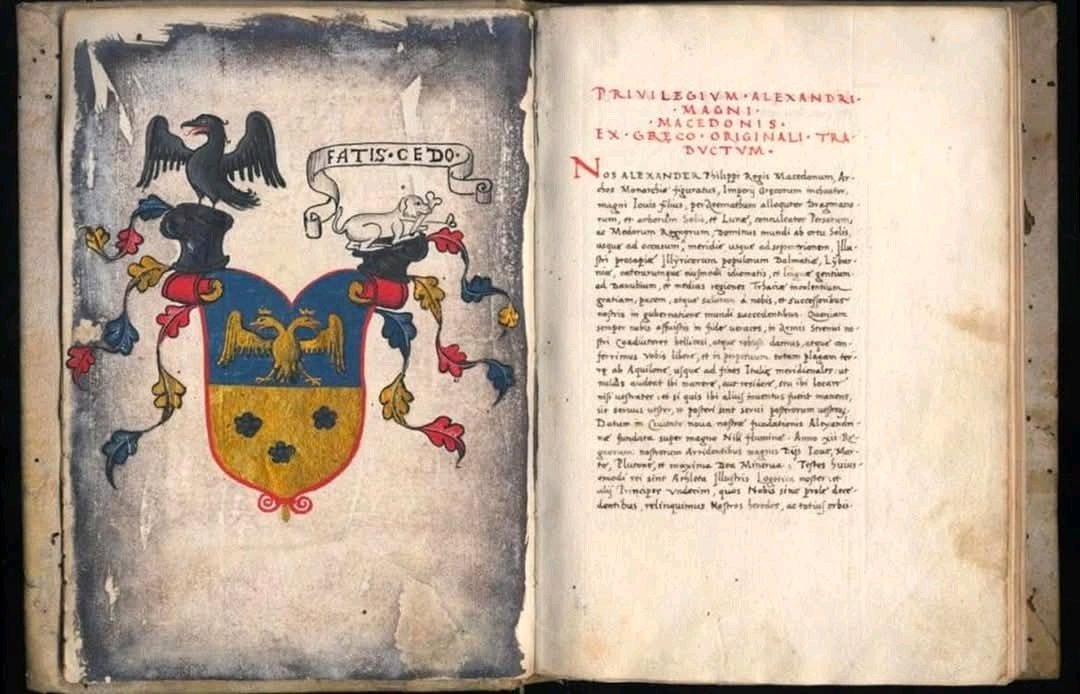 FATIS·CEDO·
PRIVILEGIVM·ALEXANDRI·
·MAGNI·
·MACEDONIS·
EX·GRĘCO·ORIGINALI·TRA-
DVCTVM·
NOS ALEXANDER Philippi Regis Macedonum, Ar-
chos Monarchiæ figuratus, Imperij Grecorum inchoator,
magni Iouis filius, per allocutor Bragmano-
rum, et arborum Solis, et Lunæ, conculcator Persarum,
ac Medorum Regnorum, Dominus mundi ab ortu Solis,
usque ad occasum, meridie usque ad septentrionem, Illu-
stri prosapiæ Illÿricorum populorum Dalmatiæ, Lÿbur-
niæ, cæterarumque eiusmodi idiomatis, et linguæ gentium
ad Danubium, et medias regiones Thraciæ incolentium
gratiam, pacem, atque salutem à nobis, et successoribus
nostris in gubernatione mundi succedentibus. Quoniam
semper nobis affuistis in fide ueraces, in Armis Strenui no-
stri Coadiutores bellicosi, atque robusti damus, atque con-
ferrimus Vobis libere, et in perpetuum totam plagam ter-
rę ab Aquilone, usque ad fines Italię meridionales: ut
nullus audeat ibi manere, aut residere, seu ibi locare
nisi uestrates: et si quis ibi alius inuentus fuerit manens,
sit seruus uester, et posteri sint serui posterorum uestrorum.
Datum in Ciuitate noua nostræ fundationis Alexandri-
næ fundata super magno Nili flumine. Anno xii Re-
gnorum nostrorum Arridentibus magnis Dijs Ioue, Mar-
te, Plutone, et maxima Dea Minerua: Testes huius-
emodi rei sint Athleta Illustris Logoteca noster: et
alij Principes Vndecim, quos Nobis sine prole dece-
dentibus, relinquimus Nostros heredes, ac totius orbis.